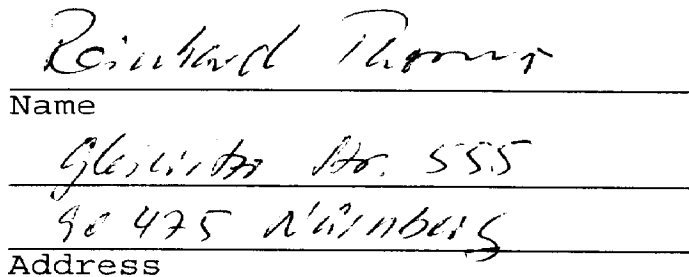 Reinhard Thoma
Name
Gleiwitzer Str. 555
90 475 Nürnberg
Address